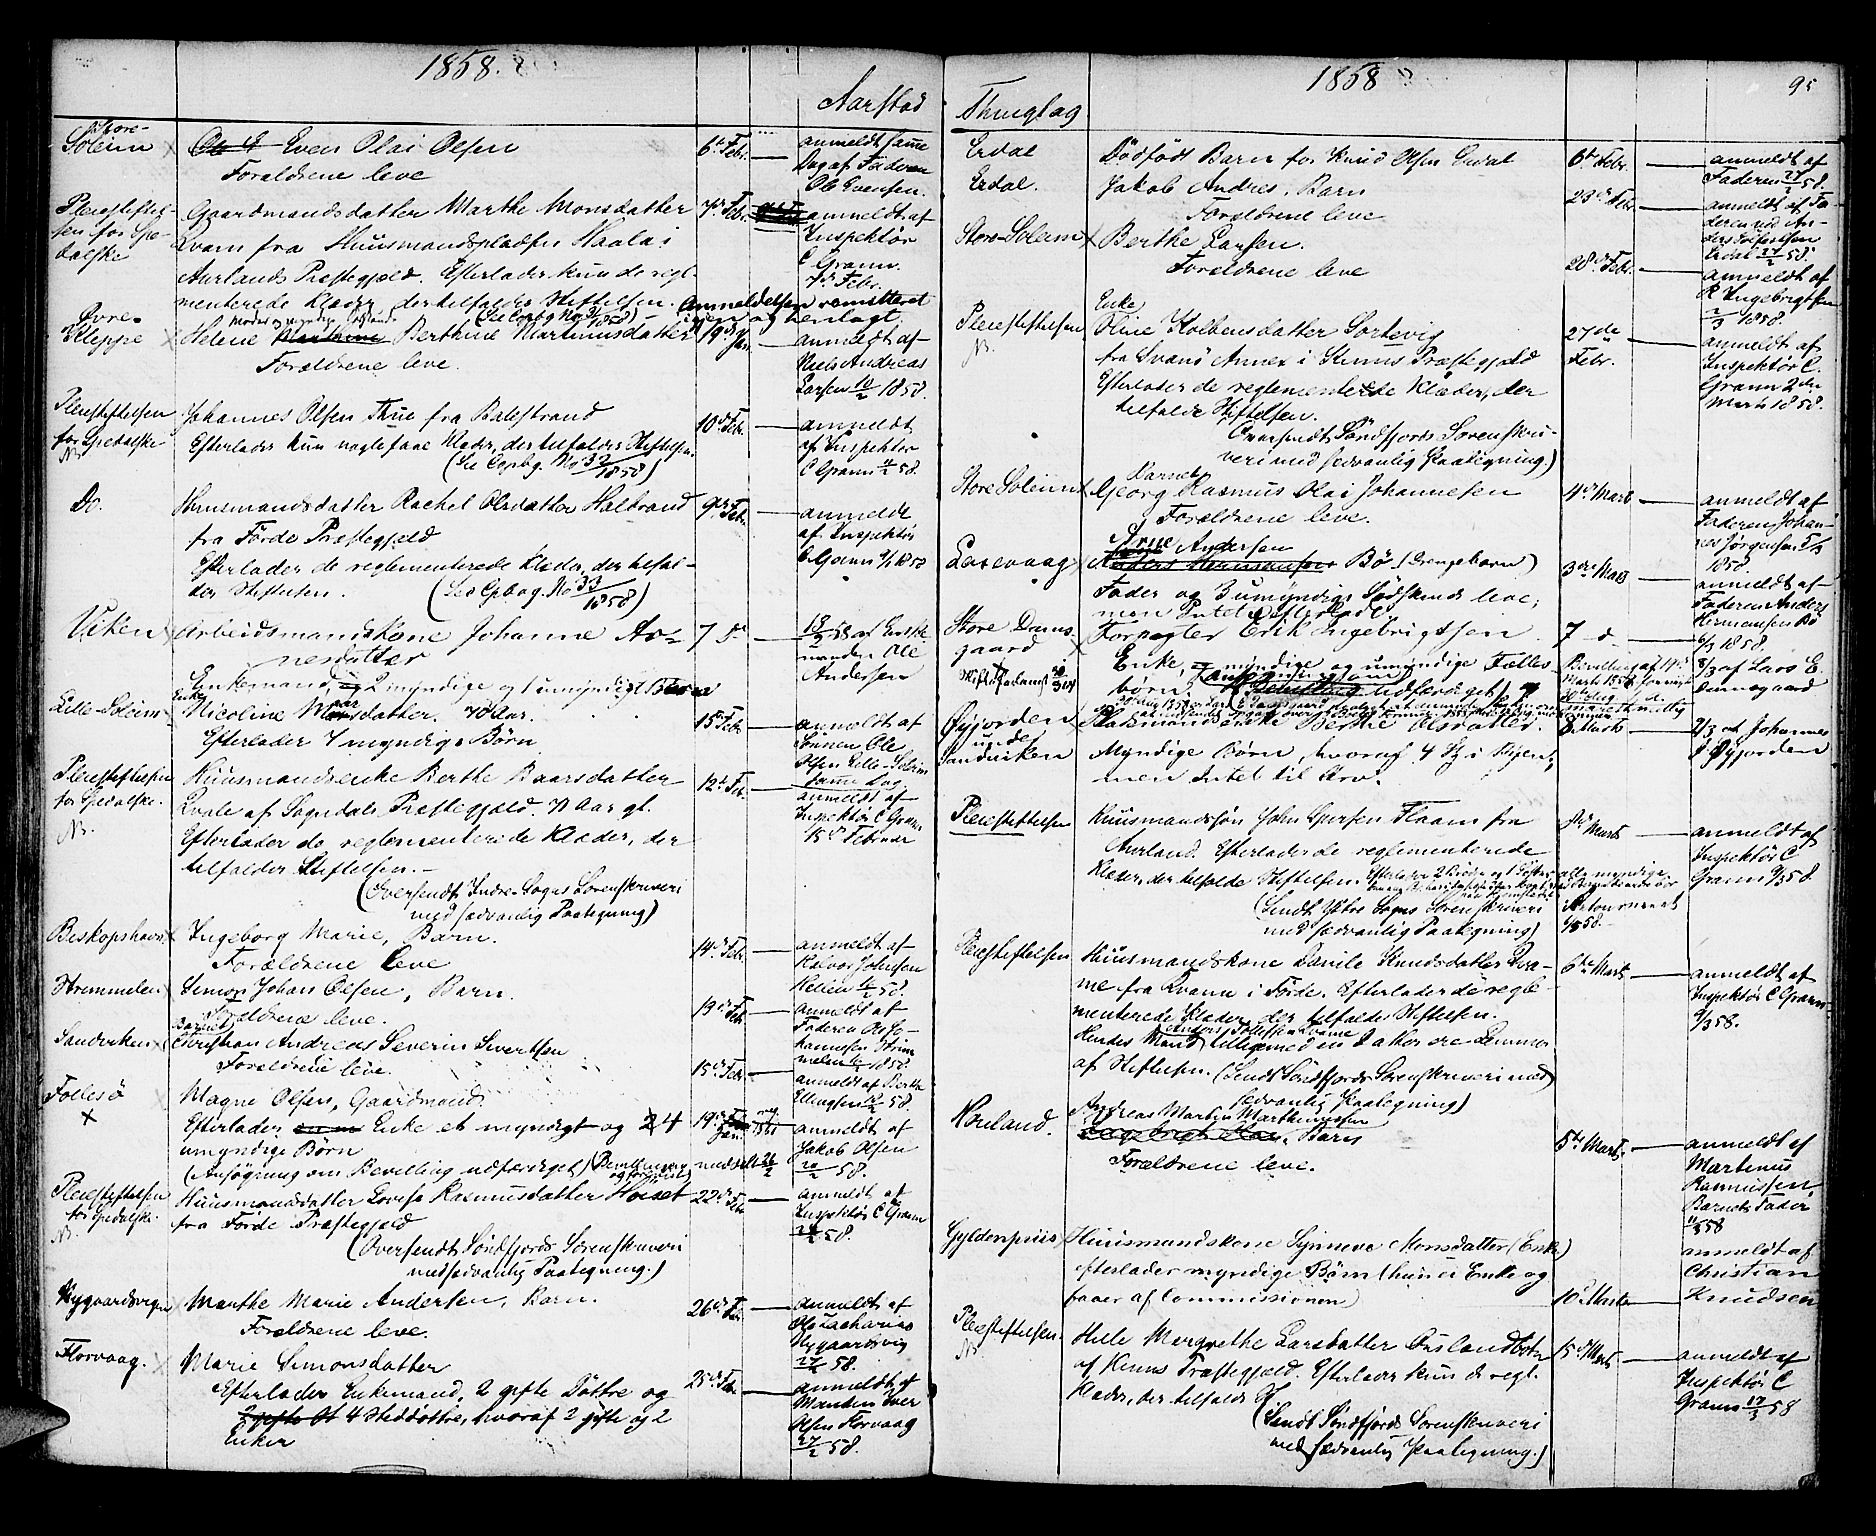 1858.
Aarstad
Store-
Soleim
Even Olai Olsen
Forældrene leve
6te Febr.
anmeldt samme
Dag af Faderen
Ole Evensen.
Pleiestiftel-
sen for Spe-
dalske
Gaardmandsdatter Marthe Monsdatter
Kvam fra Huusmandspladsen Haala i
Aurlands Præstegjeld. Efterlader kun de regl-
menterede Klæder, der tilfalder Stiftelsen.
(See Copbog No 31/1858)
Anmeldelsen remitteret
igjen og henlagt.
7de Febr.
anmeldt af
Inspektør
C Gram
7de Febr.
Øvre-
Kleppe
Helene Berthine Martinusdatter
Forældrene leve.
19de Jan.
anmeldt af
Niels Andreas
Larsen 10/2 1858.
Pleiestiftelsen
for Spedalske
NB.
Johannes Olsen Thue fra Balestrand
Efterlader kun nogle faae Klæder, der tilfalder Stiftelsen.
(See Copbog. No 32/1858)
10de Febr.
anmeldt
af Inspektør
C Gram 11/2 58.
Do.
Huusmandsdatter Rachel Olsdatter Halbrand
fra Førde Præstegjeld
Efterlader de reglementerede Klæder, der tilfal-
der Stiftelsen. (See Copbog. No 33/1858)
9de Febr.
anmeldt
af Inspektør
C Gram
Viken
Arbeidsmandskone Johanne Ar-
nesdatter
Enkemand, 2 myndige og 1 umyndigt Barn
7 d
18/2 58 af Enke
manden Ole
Andersen
Lille-Soleim
Enke
Nicoline Larsdatter. 70 Aar.
Efterlader 7 myndige Børn
15de Febr.
anmeldt af
Sønnen Ole
Olsen Lille-Soleim
samme Dag
Pleiestiftelsen
for Spedalske.
NB.
Huusmandsenke Berthe Baarsdatter
Kvale af Sogndals Præstegjeld. 71 Aar gl.
Efterlader de reglementerede Klæder, der
tilfalder Stiftelsen.-
(Oversendt Indre-Sogns Sorenskriveri
med sædvanlig Paategning)
12te Febr.
anmeldt af
Inspektør C Gram
15de Februar
Biskopshavn
Ingeborg Marie, Barn.
Forældrene leve
14de Febr.
anmeldt af
Halvor Johnsen
Helleen 16/2 58.
Strømmelen
Simon Johan Olsen, Barn.
Forældrene leve.
13de Febr.
anmeldt af
Faderen Ole Jo-
hannesen Strøm
melen 16/2 1858.
Sandviken
Barnet
Christian Andreas Severin Sivertsen
Forældrene leve.
15de Febr.
anmeldt af Berthe
Ellingsen 18/2 58.
Follesø
Magne Olsen, Gaardmand.
Efterlader Enke et myndigt og 4
umyndige Børn
(Ansøgning om Bevilling udfærdiget)
19de Jan.
anmeldt af
Jakob Olsen
20/2 58.
Pleiestiftelsen
for Spedalske
NB.
Huusmandsdatter Lovise Rasmusdatter Hoiset
fra Førde Præstegjeld
(Oversendt Søndfjords Sorenskriveri
med sædvanlig Paategning.)
22de Febr
anmeldt af
Inspektør C Gram
24/2 58.
Nygaardsvigen
Marthe Marie Andersen, Barn.
Forældrene leve.
26de Febr.
anmeldt af
Ole Zacharias
Nygaardsvig
27/2 58.
Florvaag.
Marie Simonsdatter
Efterlader Enkemand, 2 gifte Døttre og
4 Steddøttre, hvoraf 2 gifte og 2
Enker
25de Febr.
anmeldt af
Manden Iver
Olsen Florvaag
27/2 58.
Thinglag
1858
95
Erdal
Dødfødt Barn for Knud Olsen Erdal
6te Febr.
anmeldt af
Faderen 27/2 58.
Erdal.
Jakob Andres. Barn
Forældrene leve
23de Febr.
anmeldt af Fa-
deren ved An-
ders Tolfertsen
Erdal 27/2 58.
Store-Soleim
Berthe Larsen.
Forældrene leve
28de Febr.
anmeldt af
R Ingebrigtsen
2/3 1858.
Pleiestiftelsen
NB.
Enke
Oline Kolbensdatter Sortevig
fra Svanø Annex i Kinns Præstegjeld
Efterlader de reglementerede Klæder, der
tilfalde Stiftelsen.
Oversendt Søndfjords Sorenskri-
veri med sædvanlig Paategning)
27de
Febr.
anmeldt af
Inspektør C.
Gram 2den
Marts 1858.
Store Soleim
Barnet
Georg Rasmus Olai Johannesen
Forældrene leve.
4de Marts
anmeldt af
Faderen Johan-
nes Jørgensen 5/3
1858.
Laxevaag
Arne Andersen
Bø (Drengebarn)
Fader og 3 umyndige Sødskende leve;
men Intet efterladt.
3die Marts
anmeldt af
Faderen Anders
Hermansen Bø
6/3 1858.
Store Dams-
gaard
Forpagter Erik Ingebrigtsen
Enke, myndige og umyndige Fælles
børn.
7 d
8/3 af Lars E.
Damsgaard
Øyjorden
under
Sandviken
Pladsmandsenke Berthe Olsdatter.
Myndige Børn, hvoraf 4 Stk i Byen;
men Intet til Arv.
8 Marts
9/3 af Johannes
J. Øyjorden
Pleiestiftelsen
Huusmandssøn John Iversen Flaam fra
Aurland. Efterlader de reglementerede
Klæder, der tilfalde Stiftelsen.
Efterlader 2 Brødre og 1 Søster
alle myndige
(Sendt Ydre Sogns Sorenskriveri
med sædvanlig Paategning)
Marts
anmeldt af
Inspektør C
Gram 9/3 58.
Pleiestiftelsen
Huusmandskone Davite Knudsdatter Kva-
me fra Kvame i Førde. Efterlader de regle-
menterede Klæder, der tilfalde Stiftelsen.
Hendes Mand tilligemed en Datter ere Lemmer
af Stiftelsen. (Sendt Søndfjords Sorenskriveri med
sædvanlig Paategning)
6te Marts
anmeldt af
Inspektør C Gram
9/3 58.
Houland.
Andreas Martin Marthinussen
Barn
Forældrene leve.
5te Marts.
anmeldt af
Martinus
Rasmussen
Barnets Fader
11/3 58
Gyldenpriis
Huusmandskone Synneve Monsdatter (Enke)
efterlader myndige Børn (hun er Enke og
faaer af Commissionen)
10de Marts
anmeldt af
Christian
Knudsen
Pleiestiftelsen.
NB
Helle Margrethe Larsdatter Ouslandbotn
af Kinns Præstegjeld. Efterlader kun de regl.
Klæder, der tilfalde St.
(Sendt Søndfjords Sorenskriveri
med sædvanlig Paategning.)
15de Marts
anmeldt af
Inspektør C
Gram 17/3 58